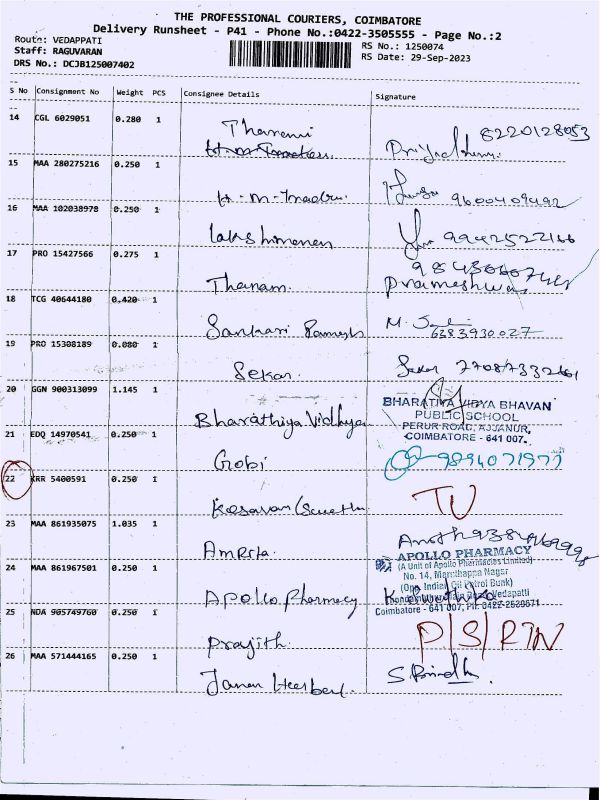 THE PROFESSIONAL COURIERS, COIMBATORE
Delivery Runsheet - P41 - Phone No.:0422-3505555 - Page No.:2
Route: VEDAPPATI
Staff: RAGUVARAN
DRS No.: DCJB125007402
RS No.: 1250074
RS Date: 29-Sep-2023
S No Consignment No Weight PCS Consignee Details Signature
14 CGL 6029051 0.280 1
8220128053
15 MAA 280275216 0.250 1
H.M. 9600409492
16 MAA 102038978 0.250 1
Lakshmanan 9942522166
17 PRO 15427566 0.275 1
Thanam Prameshwas
18 TCG 40644180 0.420 1
Sankari Ramesh M. 6383930027
19 PRO 15308189 0.080 1
Sekar Sekar
20 GGN 900313099 1.145 1
Bharathiya Vidhya
BHARATIYA VIDYA BHAVAN
PUBLIC SCHOOL
PERUR ROAD, AJJANUR,
COIMBATORE - 641 007.
21 EDQ 14970541 0.250 1
Gobi 9894071977
22 KRR 5400591 0.250 1
Kesavan TU
23 MAA 861935075 1.035 1
Amrita
APOLLO PHARMACY
(A Unit of Apollo Pharmacies Limited)
No. 14, Maruthappa Nagar
(Opp. Indian Oil Petrol Bunk)
Vedapatti
Coimbatore - 641 007, PH: 0422-2629671
24 MAA 861967501 0.250 1
Apollo Pharmacy
25 NDA 905749760 0.250 1
Prajith P/S/RTN
26 MAA 571444165 0.250 1
S Brindha